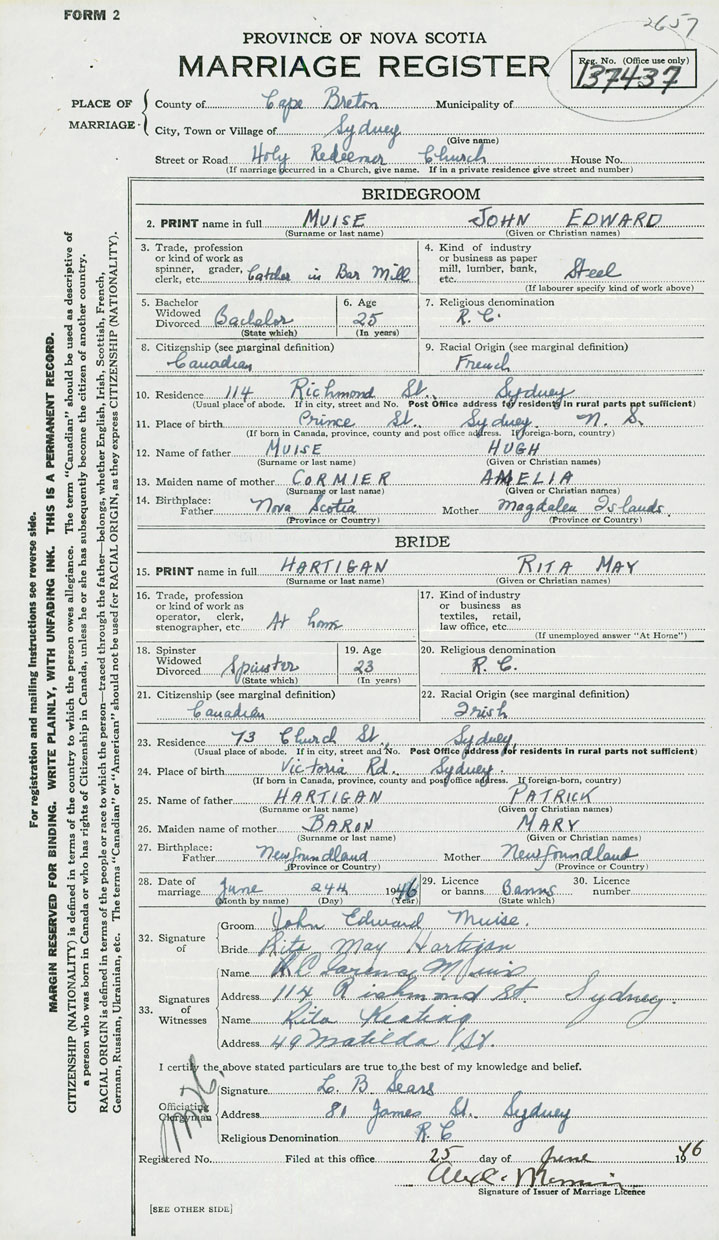 FORM 2
2657
PROVINCE OF NOVA SCOTIA
MARRIAGE REGISTER
Reg. No. (Office use only)
137437
PLACE OF MARRIAGE
County of Cape Breton Municipality of
City, Town or Village of Sydney
(Give name)
Street or Road Holy Redeemer Church House No.
(If marriage occurred in a Church, give name. If in a private residence give street and number)
BRIDEGROOM
2. PRINT name in full MUISE JOHN EDWARD
(Surname or last name) (Given or Christian names)
3. Trade, profession or kind of work as spinner, grader, clerk, etc. Catcher in Bar Mill
4. Kind of industry or business as paper mill, lumber, bank, etc. Steel
(If labourer specify kind of work above)
5. Bachelor Widowed Divorced Bachelor (State which)
6. Age 25 (In years)
7. Religious denomination R. C.
8. Citizenship (see marginal definition) Canadian
9. Racial Origin (see marginal definition) French
10. Residence 114 Richmond St. Sydney
(Usual place of abode. If in city, street and No. Post Office address for residents in rural parts not sufficient)
11. Place of birth Prince St. Sydney N. S.
(If born in Canada, province, county and post office address. If foreign-born, country)
12. Name of father MUISE HUGH
(Surname or last name) (Given or Christian names)
13. Maiden name of mother CORMIER AMELIA
(Surname or last name) (Given or Christian names)
14. Birthplace: Father Nova Scotia Mother Magdalen Islands
(Province or Country) (Province or Country)
BRIDE
15. PRINT name in full HARTIGAN RITA MAY
(Surname or last name) (Given or Christian names)
16. Trade, profession or kind of work as operator, clerk, stenographer, etc At home
17. Kind of industry or business as textiles, retail, law office, etc.
(If unemployed answer "At Home")
18. Spinster Widowed Divorced Spinster (State which)
19. Age 23 (In years)
20. Religious denomination R. C.
21. Citizenship (see marginal definition) Canadian
22. Racial Origin (see marginal definition) Irish
23. Residence 73 Church St. Sydney
(Usual place of abode. If in city, street and No. Post Office address for residents in rural parts not sufficient)
24. Place of birth Victoria Rd. Sydney.
(If born in Canada, province, county and post office address. If foreign-born, country)
25. Name of father HARTIGAN PATRICK
(Surname or last name) (Given or Christian names)
26. Maiden name of mother BARON MARY
(Surname or last name) (Given or Christian names)
27. Birthplace: Father Newfoundland Mother Newfoundland
(Province or Country) (Province or Country)
28. Date of marriage June 24th 1946
(Month by name) (Day) (Year)
29. Licence or banns Banns (State which)
30. Licence number
32. Signature of
Groom John Edward Muise.
Bride Rita May Hartigan
33. Signatures of Witnesses
Name Clarence Muise
Address 114 Richmond St. Sydney.
Name Rita Keating
Address 49 Matilda St.
I certify the above stated particulars are true to the best of my knowledge and belief.
Officiating Clergyman
Signature L. B. Sears
Address 81 James St. Sydney
Religious Denomination R. C
Registered No. Filed at this office 25 day of June 1946
Signature of Issuer of Marriage Licence
[SEE OTHER SIDE]
For registration and mailing instructions see reverse side.
MARGIN RESERVED FOR BINDING. WRITE PLAINLY, WITH UNFADING INK. THIS IS A PERMANENT RECORD.
CITIZENSHIP (NATIONALITY) is defined in terms of the country to which the person owes allegiance. The term "Canadian" should be used as descriptive of
a person who was born in Canada or who has rights of Citizenship in Canada, unless he or she has subsequently become the citizen of another country.
RACIAL ORIGIN is defined in terms of the people or race to which the person—traced through the father—belongs, whether English, Irish, Scottish, French,
German, Russian, Ukrainian, etc. The terms "Canadian" or "American" should not be used for RACIAL ORIGIN, as they express CITIZENSHIP (NATIONALITY).